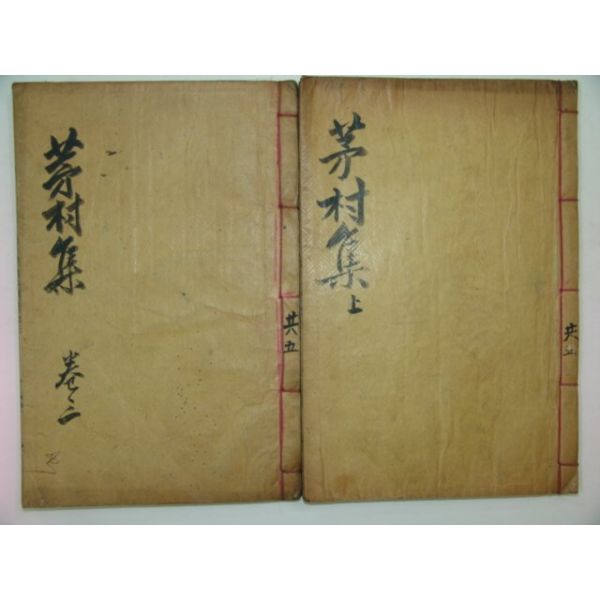 茅村集
上
共五
茅村集
卷之二
共五